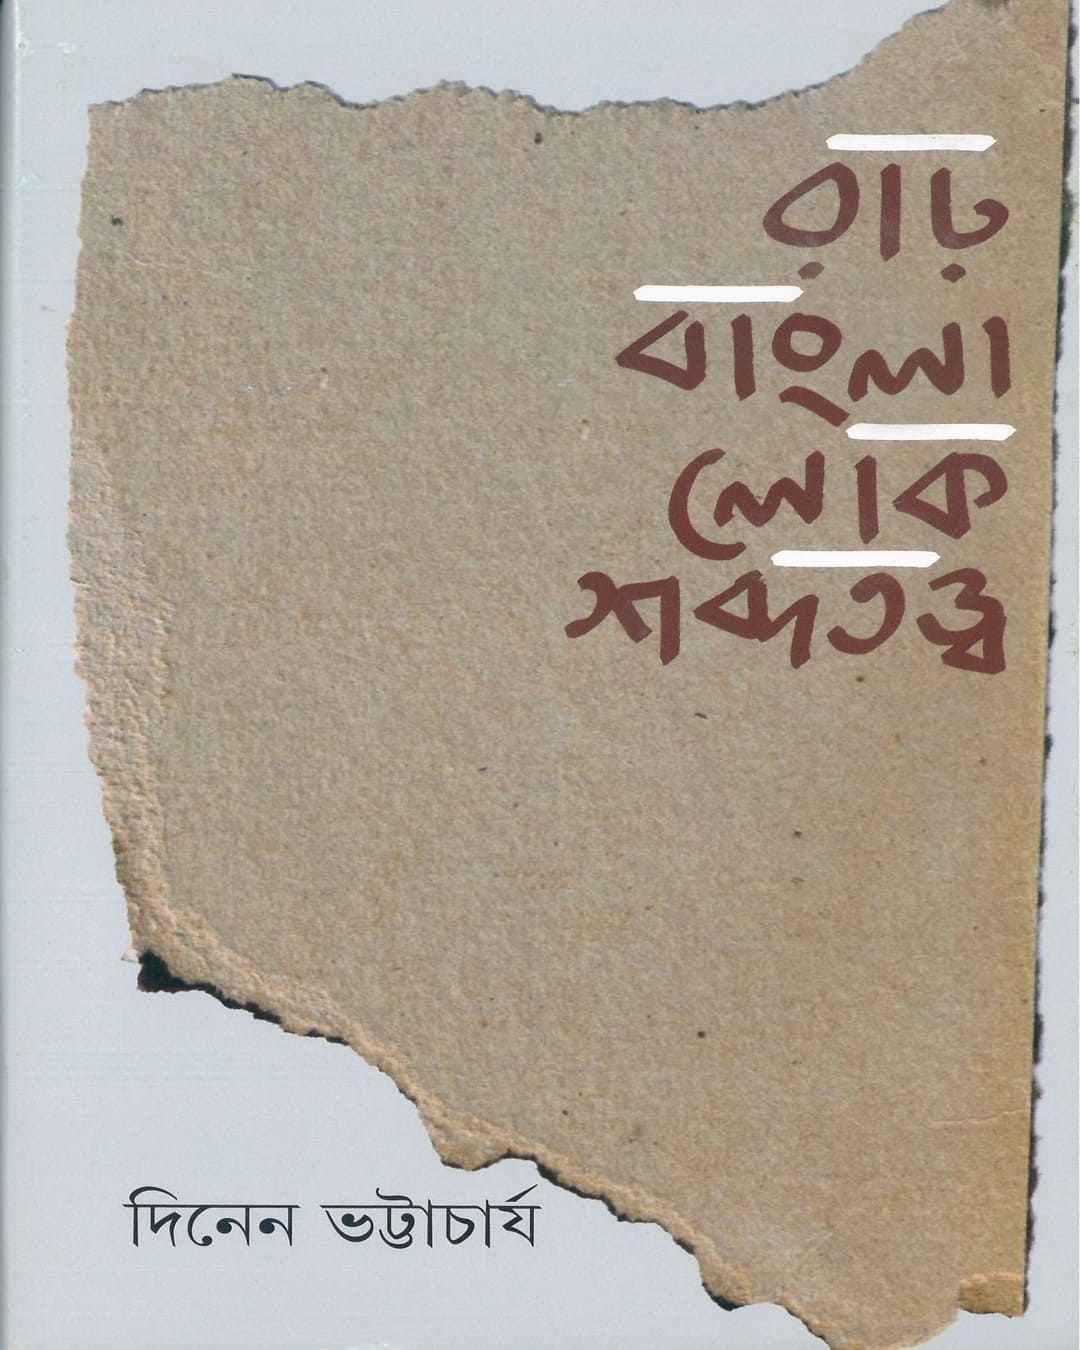 রাঢ়
বাংলা
লোক
শব্দতত্ত্ব
দিনেন ভট্টাচার্য